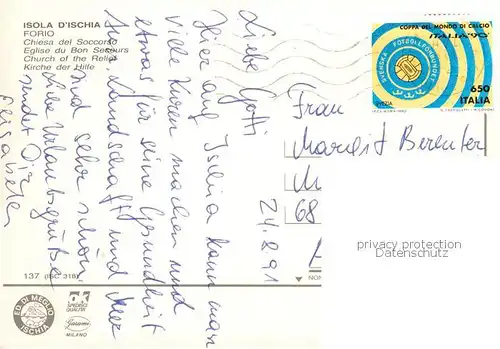 ISOLA D'ISCHIA
FORIO
Chiesa del Soccorso
Eglise du Bon Secours
Church of the Relief
Kirche der Hilfe
Liebe Gotti
24.8.91
Hier auf Ischia kann man
viele Kuren machen und
etwas für seine Gesundheit
tun. Landschaft und Meer
sind sehr schön.
Liebe Urlaubsgrüße
sendet Dir
Elisabeth
COPPA DEL MONDO DI CALCIO
ITALIA '90
SVENSKA FOTBOLLFÖRBUNDET
SVEZIA
650
ITALIA
Frau
Margit
M
68
privacy protection
Datenschutz
137
ED. DI MEGLIO
ISCHIA
MILANO